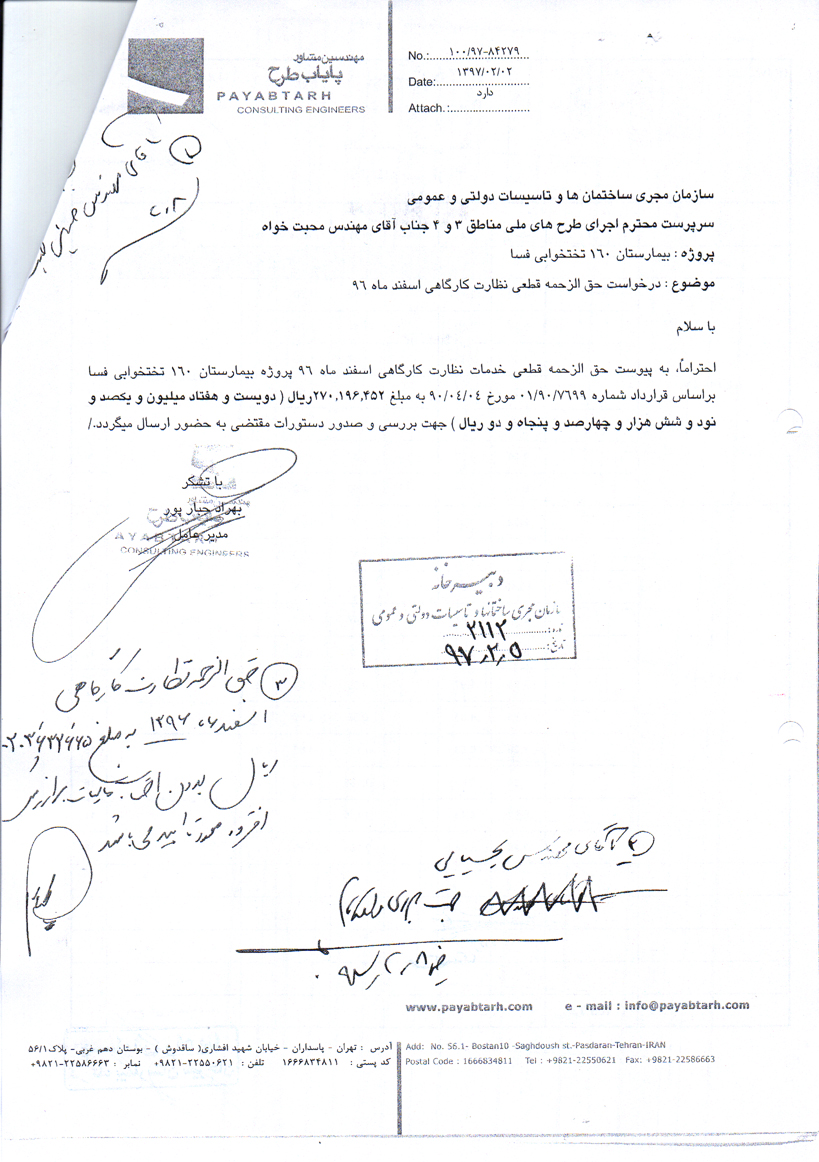 مهندسین مشاور
پایاب طرح
PAYABTARH
CONSULTING ENGINEERS
No.: ۱۰۰/۹۷-۸۴۲۷۹
Date: ۱۳۹۷/۰۲/۰۲
دارد
Attach.:
۲
آقای مهندس
سازمان مجری ساختمان ها و تاسیسات دولتی و عمومی
سرپرست محترم اجرای طرح های ملی مناطق ۳ و ۴ جناب آقای مهندس محبت خواه
پروژه : بیمارستان ۱۶۰ تختخوابی فسا
موضوع : درخواست حق الزحمه قطعی نظارت کارگاهی اسفند ماه ۹۶
با سلام
احتراماً، به پیوست حق الزحمه قطعی خدمات نظارت کارگاهی اسفند ماه ۹۶ پروژه بیمارستان ۱۶۰ تختخوابی فسا
براساس قرارداد شماره ۰۱/۹۰/۷۶۹۹ مورخ ۹۰/۰۴/۰۴ به مبلغ ۲۷۰,۱۹۶,۴۵۲ریال ( دویست و هفتاد میلیون و یکصد و
نود و شش هزار و چهارصد و پنجاه و دو ریال ) جهت بررسی و صدور دستورات مقتضی به حضور ارسال میگردد./
با تشکر
بهراد جبار پور
مدیر عامل
AYABTARH
CONSULTING ENGINEERS
دبیرخانه
سازمان مجری ساختمانها و تاسیسات دولتی و عمومی
۲۱۱۲
تاریخ: ۹۷٫۳٫۵
۳ حق الزحمه نظارت کارگاهی
اسفند ماه ۱۳۹۶ به مبلغ
ریال بدون احتساب مالیات بر ارزش
افزوده مورد تایید می باشد
آقای مهندس یحیایی
جهت
www.payabtarh.com e - mail : info@payabtarh.com
آدرس : تهران - پاسداران - خیابان شهید افشاری( ساقدوش ) - بوستان دهم غربی- پلاک۵۶/۱
کد پستی : ۱۶۶۶۸۳۴۸۱۱ تلفن : ۲۲۵۵۰۶۲۱-۹۸۲۱+ نمابر : ۲۲۵۸۶۶۶۳-۹۸۲۱+
Add: No. 56.1- Bostan10 -Saghdoush st.-Pasdaran-Tehran-IRAN
Postal Code : 1666834811 Tel : +9821-22550621 Fax: +9821-22586663